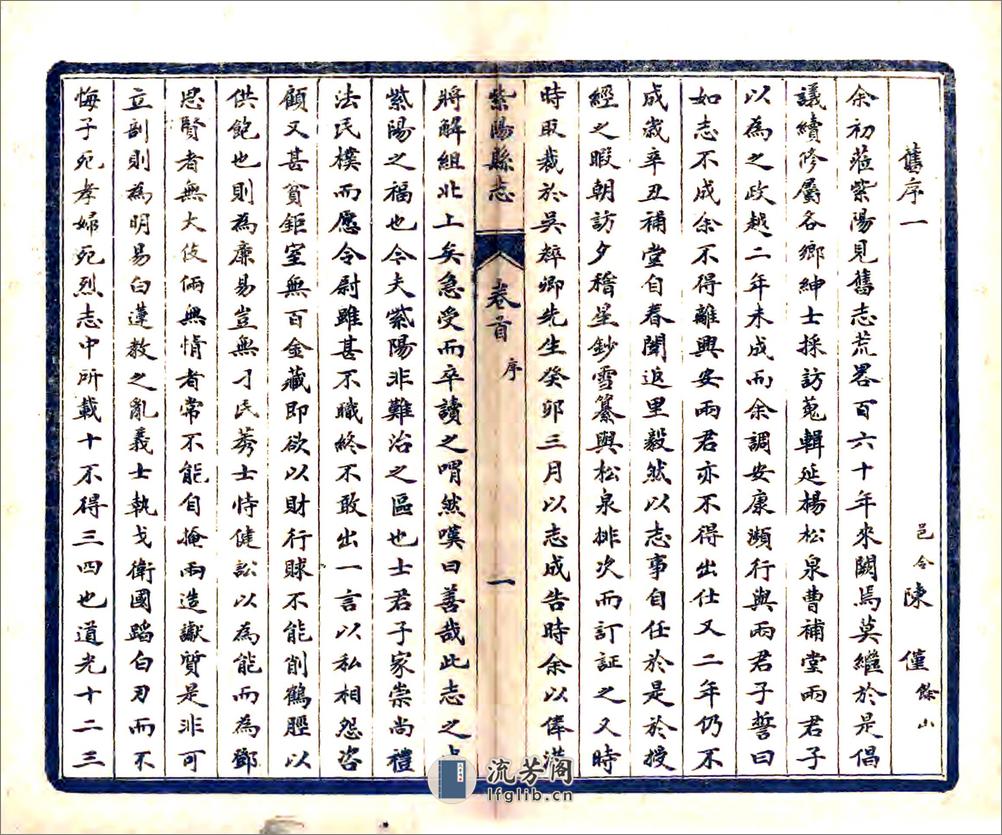 舊序一
邑令陳僅餘山
余初蒞紫陽見舊志荒畧百六十年來闕焉莫繼於是倡
議續修屬各鄉紳士採訪蒐輯延楊松泉曹補堂兩君子
以為之政越二年未成而余調安康瀕行與兩君子誓曰
如志不成余不得離興安兩君亦不得出仕又二年仍不
成歲辛丑補堂自春闈返里毅然以志事自任於是於授
經之暇朝訪夕稽星鈔雪纂與松泉排次而訂証之又時
時取裁於吳粹卿先生癸卯三月以志成告時余以俸滿
紫陽縣志
卷首
序
一
將解組北上矣急受而卒讀之喟然嘆曰善哉此志之
紫陽之福也今夫紫陽非難治之區也士君子家崇尚禮
法民樸而愿令尉雖甚不職終不敢出一言以私相怨咨
顧又甚貧鉅室無百金藏即欲以財行賕不能削鶴脛以
供飽也則為廉易豈無刁民莠士恃健訟以為能而為鄧
思賢者無大伎倆無情者常不能自掩兩造讞質是非可
立剖則為明易白蓮教之亂義士執戈衛國蹈白刃而不
悔子死孝婦死烈志中所載十不得三四也道光十二三
流芳閣
lfglib.cn